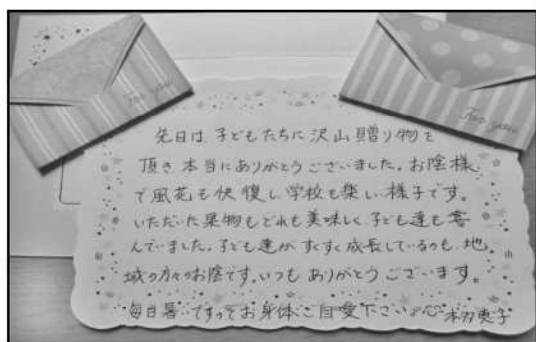 For you
For you
先日は、子どもたちに沢山贈り物を
頂き、本当にありがとうございました。お陰様
で風花も快復し、学校も楽しい様子です。
いただいた果物もどれも美味しく、子ども達も喜
んでいました。子ども達がすくすく成長しているのも、地
域の方々のお陰です。いつもありがとうございます。
毎日暑いですのでお身体ご自愛下さい。
恵子